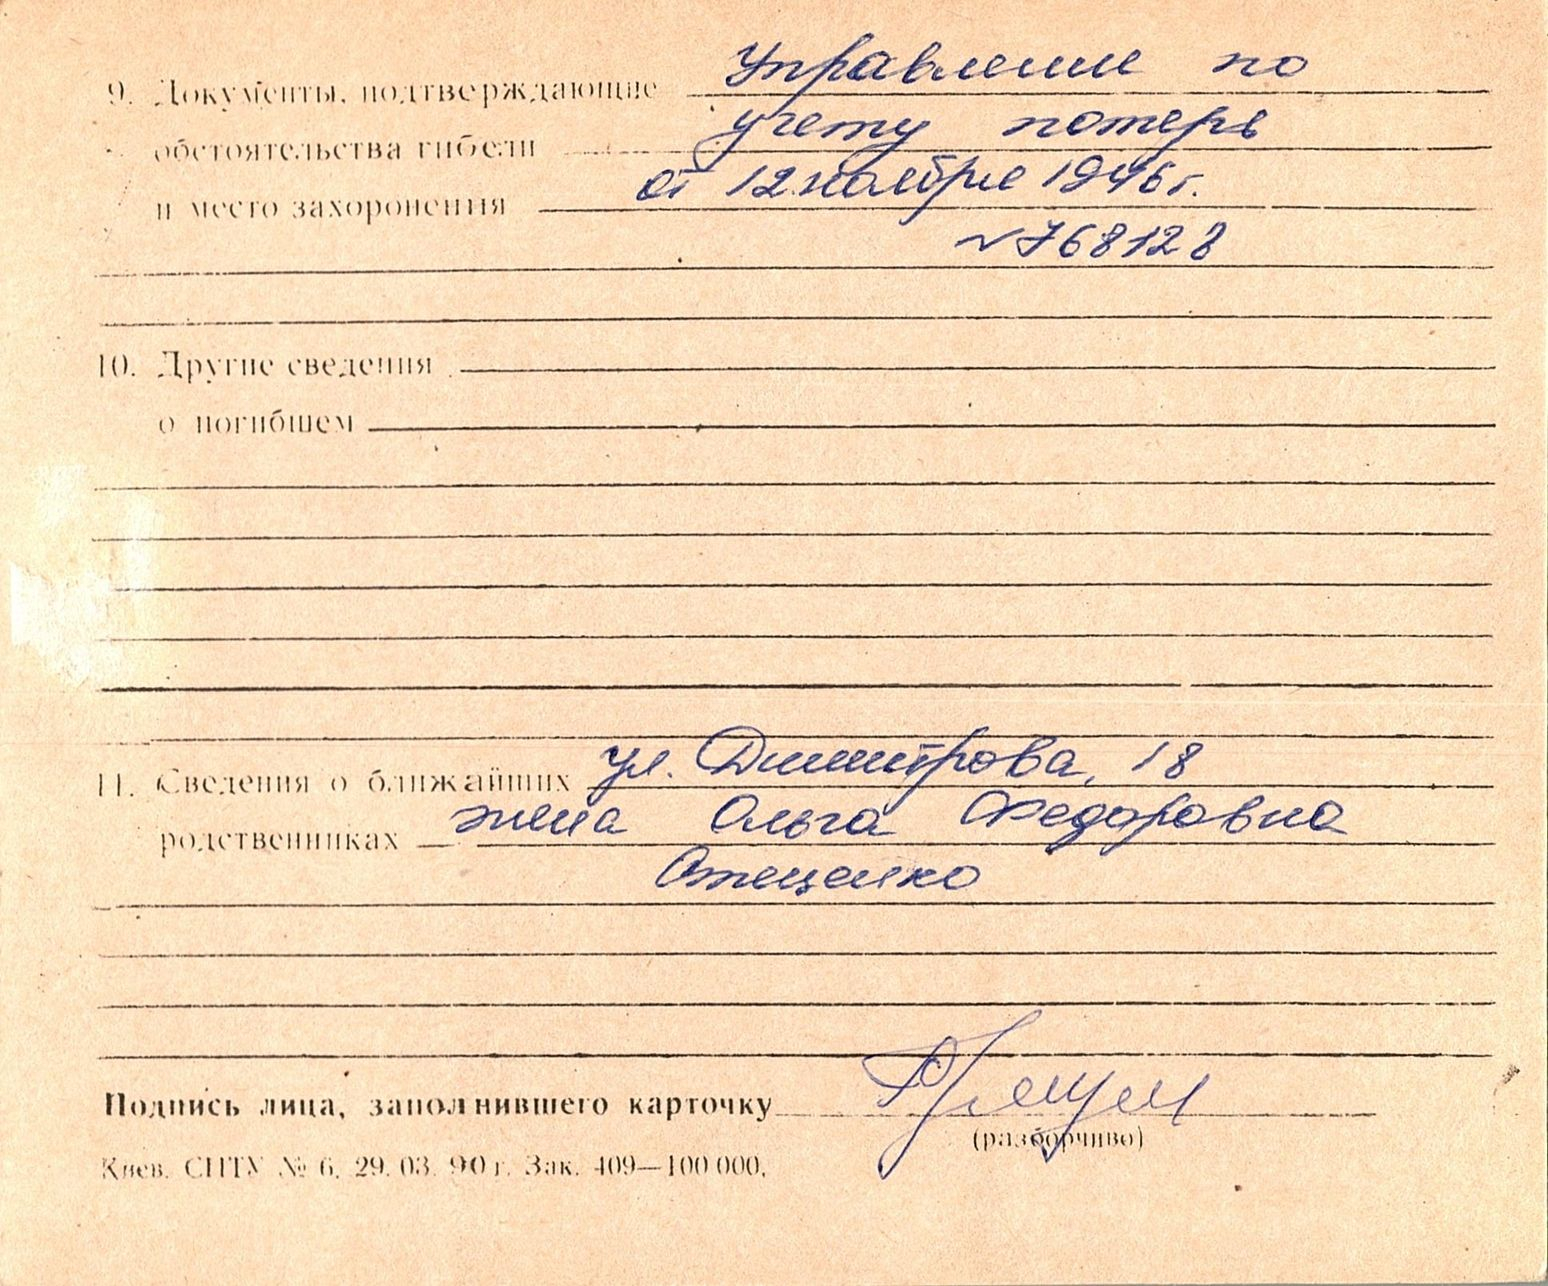 Управление по
9. Документы, подтверждающие
учету потерь
обстоятельства гибели
от 12 ноября 1946 г.
и место захоронения
№ 768128
10. Другие сведения
о погибшем
ул. Димитрова, 18
11. Сведения о ближайших
жена Ольга Федоровна
родственниках
Стеценко
Подпись лица, заполнившего карточку
(разборчиво)
Киев. СПТУ № 6. 29. 03. 90 г. Зак. 409—100 000.